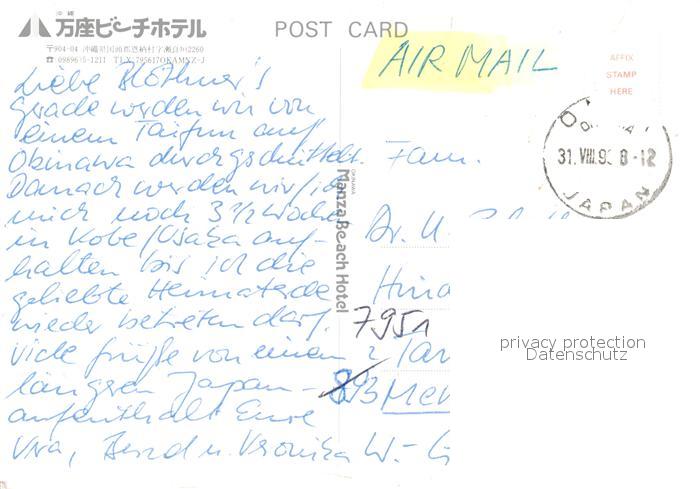 沖縄
万座ビーチホテル
POST CARD
〒904-04 沖縄県国頭郡恩納村字瀬良垣2260
☎ 09896-5-1211 TLX 795617OKAMNZ-J
AIR MAIL
AFFIX
STAMP
HERE
31.VIII.93 8-12
JAPAN
Liebe
gerade werden wir von
einem Taifun auf
Okinawa durchgeschüttelt.
Danach werden wir/ich
mich noch 3 1/2 Wochen
in Kobe/Osaka auf-
halten bis ich die
geliebte Heimaterde
wieder betreten darf.
Viele Grüße von einem
längeren Japan-
aufenthalt Eure
Uwa, Bernd u. Veronika
OKINAWA
Manza Beach Hotel
Fam.
Dr. U.
7951
W.-
privacy protection
Datenschutz